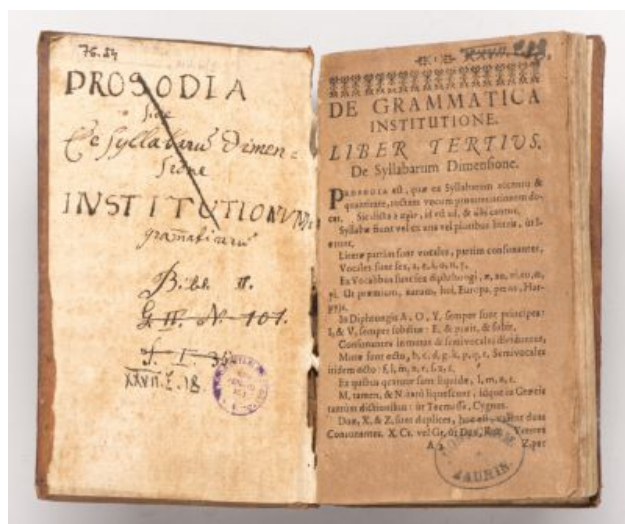 76.54
PROSODIA
sive
De Syllabarū Dimen=
sione
INSTITUTIONVM
gramaticarū
Bibl. II.
G. II. N. 101.
XXVII. E. 18.
DE GRAMMATICA
INSTITUTIONE.
LIBER TERTIVS.
De Syllabarum Dimensione.
PROSODIA est, quæ ex Syllabarum accentu &
quantitate, rectam vocum pronuntiationem do-
cet. Sic dicta à id est ad, & cantus,
Syllabæ fiunt vel ex una vel pluribus literis, ut I-
Literæ partim sunt vocales, partim consonantes,
Vocales sunt sex, a, e, i, o, u, y.
Ex Vocalibus sunt sex diphthongi, æ, au, ei, eu, œ,
yi. Ut præmium, auram, hei, Europa, pœna, Har-
pyja.
In Diphtongis A, O, Y, semper sunt principes:
I, & V, semper subditæ: E, & præit, & subit,
Consonantes in mutas & semivocales dividuntur,
Mutæ sunt octo, b, c, d, g, k, p, q, t, Semivocales
itidem octo: f, l, m, n, r, s, x, z,
Ex quibus quatuor sunt liquidæ, l, m, n, r,
M, tamen, & N, rarò liquescunt, idque in Græcis
tantùm dictionibus: ut Tecmessa, Cygnus.
Duæ, X, & Z, sunt duplices, hoc est, valent duas
Consonantes. X, Cs, vel Gs, ut Dux, Rex
A 2 Z, per
JAURIN.